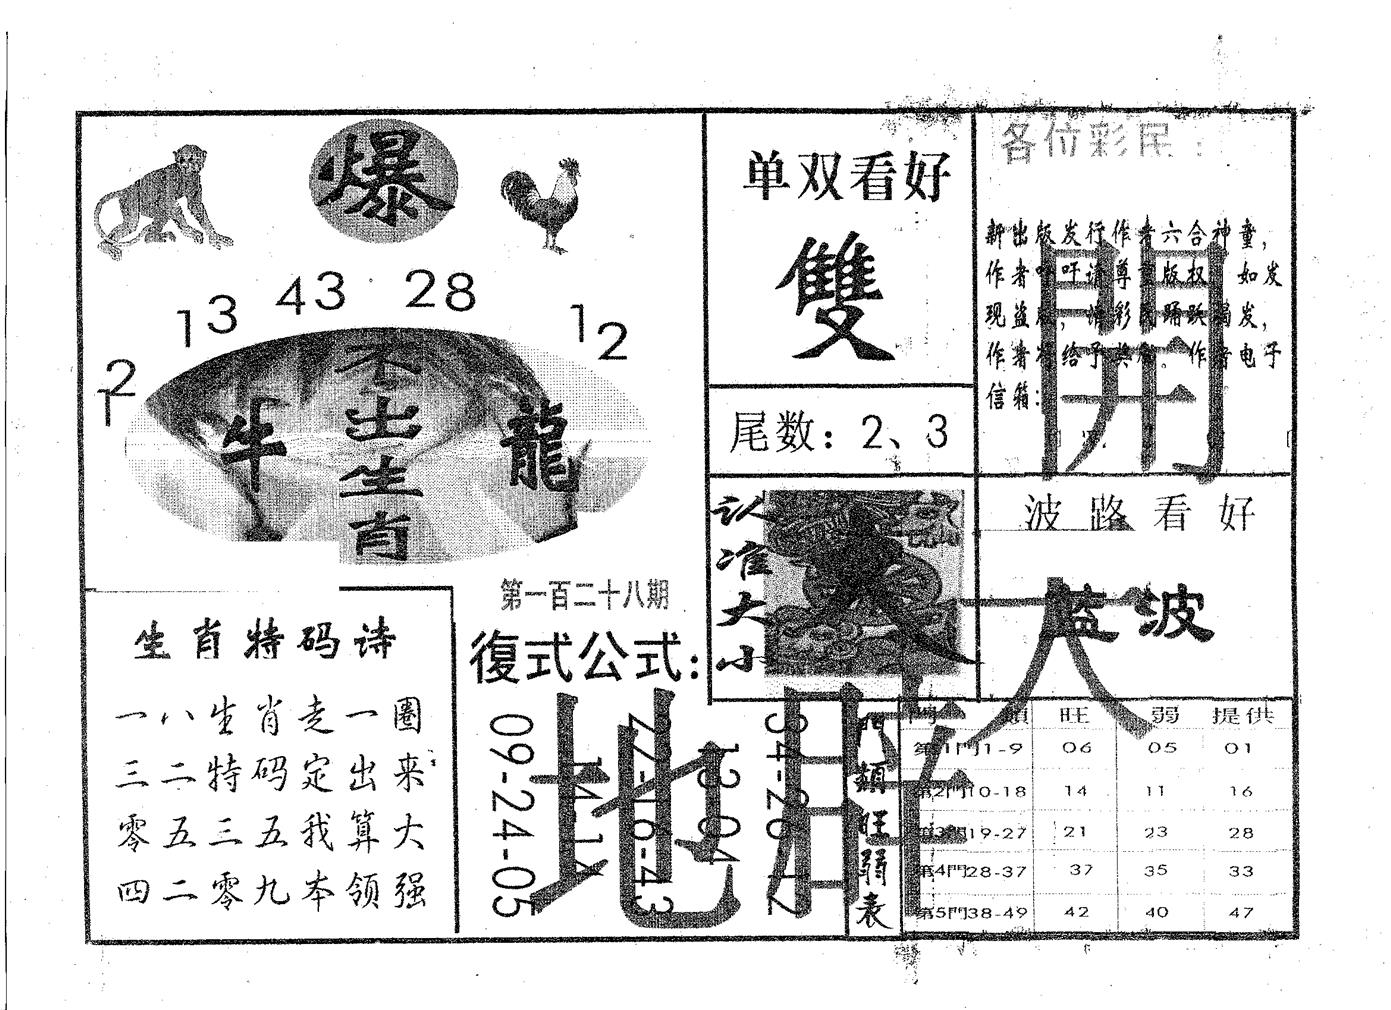 爆
13 43 28 12
12
不出生肖
牛 龍
单双看好
雙
尾数：2、3
各位彩民：
新出版发行作者六合神童，
作者呼吁请尊重版权，如发
现盗版，请彩民踊跃揭发，
作者将给予奖励。作者电子
信箱：
開
认准大小
大
波路看好
蓝波
第一百二十八期
復式公式：
09-24-05
14-14
27-16-43
13-04
34-26-12
地
旺
生肖特码诗
一八生肖走一圈
三二特码定出来
零五三五我算大
四二零九本领强
門類旺弱表
門類 旺 弱 提供
第1門1-9 06 05 01
第2門10-18 14 11 16
第3門19-27 21 23 28
第4門28-37 37 35 33
第5門38-49 42 40 47